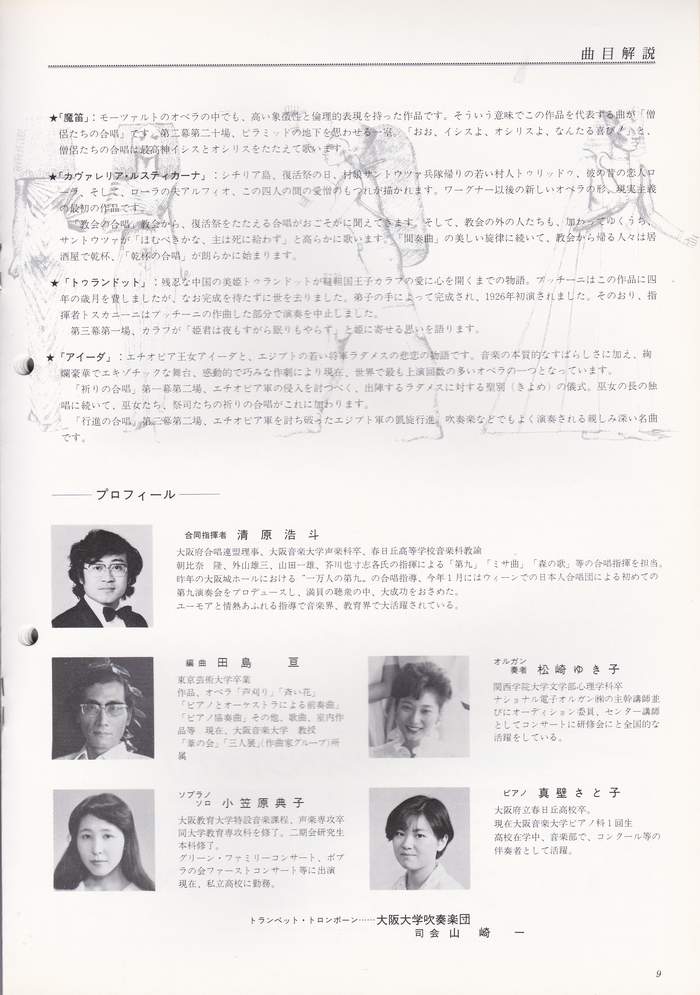 曲目解説
★「魔笛」：モーツァルトのオペラの中でも、高い象徴性と倫理的表現を持った作品です。そういう意味でこの作品を代表する曲が「僧
侶たちの合唱」です。第二幕第二十場、ピラミッドの地下を思わせる一室。「おお、イシスよ、オシリスよ、なんたる喜び！」と、
僧侶たちの合唱は最高神イシスとオシリスをたたえて歌います。
★「カヴァレリア・ルスティカーナ」：シチリア島、復活祭の日、村娘サントウッツァ兵隊帰りの若い村人トゥリッドゥ、彼の昔の恋人ロ
ーラ、そして、ローラの夫アルフィオ、この四人の間の愛憎のもつれが描かれます。ワーグナー以後の新しいオペラの形、現実主義
の最初の作品です。
「教会の合唱」教会から、復活祭をたたえる合唱がおごそかに聞えてきます。そして、教会の外の人たちも、加わってゆくうち、
サントウッツァが「はむべきかな、主は死に給わず」と高らかに歌います。「間奏曲」の美しい旋律に続いて、教会から帰る人々は居
酒屋で乾杯、「乾杯の合唱」が朗らかに始まります。
★「トゥランドット」：残忍な中国の美姫トゥランドットが韃靼国王子カラフの愛に心を開くまでの物語。プッチーニはこの作品に四
年の歳月を費しましたが、なお完成を待たずに世を去りました。弟子の手によって完成され、1926年初演されました。そのおり、指
揮者トスカニーニはプッチーニの作曲した部分で演奏を中止しました。
第三幕第一場、カラフが「姫君は夜もすがら眠りもやらず」と姫に寄せる思いを語ります。
★「アイーダ」：エチオピア王女アイーダと、エジプトの若い将軍ラダメスの悲恋の物語です。音楽の本質的なすばらしさに加え、絢
爛豪華でエキゾチックな舞台、感動的で巧みな作劇により現在、世界で最も上演回数の多いオペラの一つとなっています。
「祈りの合唱」第一幕第二場、エチオピア軍の侵入を討つべく、出陣するラダメスに対する聖別（きよめ）の儀式。巫女の長の独
唱に続いて、巫女たち、祭司たちの祈りの合唱がこれに加わります。
「行進の合唱」第二幕第二場、エチオピア軍を討ち破ったエジプト軍の凱旋行進。吹奏楽などでもよく演奏される親しみ深い名曲
です。
プロフィール
合同指揮者 清原浩斗
大阪府合唱連盟理事、大阪音楽大学声楽科卒、春日丘高等学校音楽科教諭
朝比奈 隆、外山雄三、山田一雄、芥川也寸志各氏の指揮による「第九」「ミサ曲」「森の歌」等の合唱指揮を担当。
昨年の大阪城ホールにおける“一万人の第九”の合唱指導、今年1月にはウィーンでの日本人合唱団による初めての
第九演奏会をプロデュースし、満員の聴衆の中、大成功をおさめた。
ユーモアと情熱あふれる指導で音楽界、教育界で大活躍されている。
編曲 田島 亘
東京芸術大学卒業
作品、オペラ「声刈り」「斉い花」
「ピアノとオーケストラによる前奏曲」
「ピアノ協奏曲」その他、歌曲、室内作
品等 現在、大阪音楽大学 教授
「葦の会」「三人展」（作曲家グループ）所
属
オルガン
奏者 松崎ゆき子
関西学院大学文学部心理学科卒
ナショナル電子オルガン㈱の主幹講師並
びにオーディション委員、センター講師
としてコンサートに研修会にと全国的な
活躍をしている。
ソプラノ
ソロ 小笠原典子
大阪教育大学特設音楽課程、声楽専攻卒
同大学教育専攻科を修了。二期会研究生
本科修了。
グリーン・ファミリーコンサート、ポプ
ラの会ファーストコンサート等に出演
現在、私立高校に勤務。
ピアノ 真壁さと子
大阪府立春日丘高校卒。
現在大阪音楽大学ピアノ科1回生
高校在学中、音楽部で、コンクール等の
伴奏者として活躍。
トランペット・トロンボーン……大阪大学吹奏楽団
司会 山崎 一
9